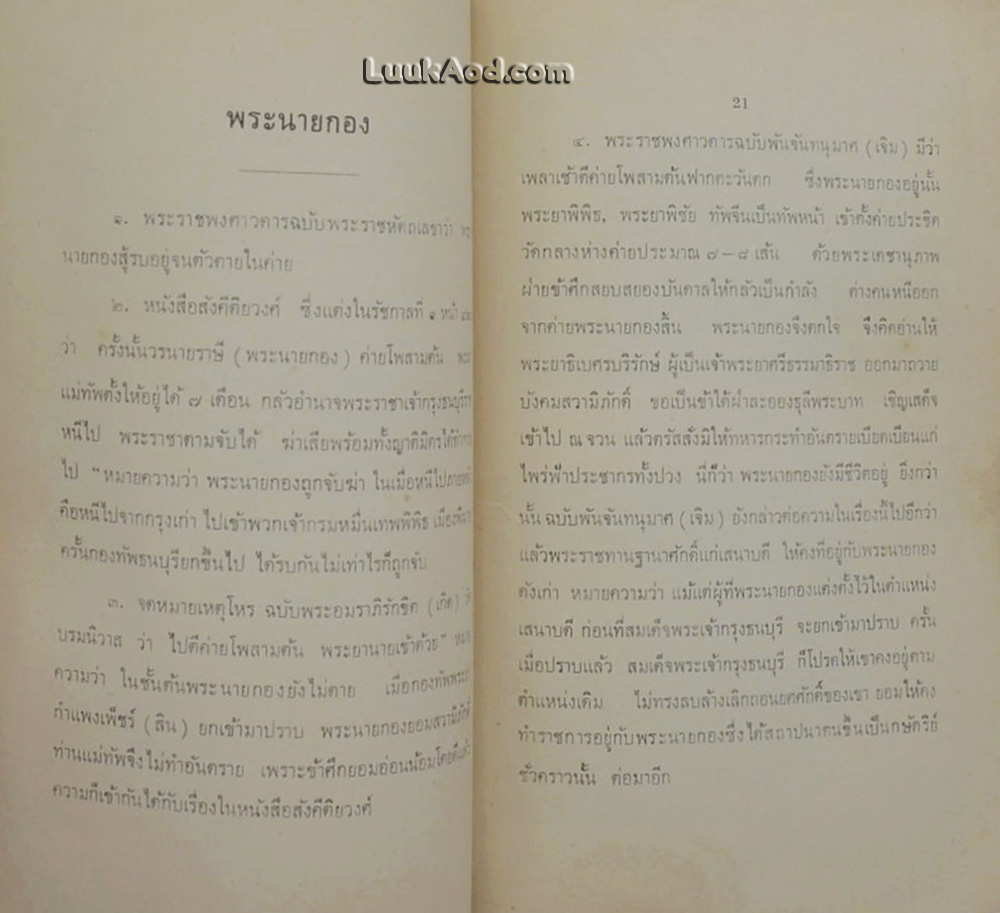 LuukAod.com
พระนายกอง
๑. พระราชพงศาวดารฉบับพระราชหัตถเลขาว่า
นายกองสู้รบอยู่จนตัวตายในค่าย
๒. หนังสือสังคีติยวงศ์ ซึ่งแต่งในรัชกาลที่ ๑ หน้า
ว่า ครั้งนั้นวรนายราษี (พระนายกอง) ค่ายโพสามต้น
แม่ทัพตั้งให้อยู่ได้ ๗ เดือน กลัวอำนาจพระราชาเจ้ากรุงธนบุรี
หนีไป พระราชาตามจับได้ ฆ่าเสียพร้อมทั้งญาติมิตร
ไป "หมายความว่า พระนายกองถูกจับฆ่า ในเมื่อหนีไป
คือหนีไปจากกรุงเก่า ไปเข้าพวกเจ้ากรมหมื่นเทพพิพิธ
ครั้นกองทัพธนบุรียกขึ้นไป ได้รบกันไม่เท่าไรก็ถูกจับ
๓. จดหมายเหตุโหร ฉบับพระอมราภิรักขิต (เกิด)
บรมนิวาส ว่า ไปตีค่ายโพสามต้น พระยานายเข้าด้วย"
ความว่า ในชั้นต้นพระนายกองยังไม่ตาย เมื่อกองทัพ
กำแพงเพ็ชร์ (สิน) ยกเข้ามาปราบ พระนายกองยอมสวามิภักดิ์
ท่านแม่ทัพจึงไม่ทำอันตราย เพราะข้าศึกยอมอ่อนน้อมโดย
ความก็เข้ากันได้กับเรื่องในหนังสือสังคีติยวงศ์
21
๔. พระราชพงศาวดารฉบับพันจันทนุมาศ (เจิม) มีว่า
เพลาเช้าตีค่ายโพสามต้นฟากตะวันตก ซึ่งพระนายกองอยู่นั้น
พระยาพิพิธ, พระยาพิชัย ทัพจีนเป็นทัพหน้า เข้าตั้งค่ายประชิต
วัดกลางห่างค่ายประมาณ ๗ – ๘ เส้น ด้วยพระเดชานุภาพ
ฝ่ายข้าศึกสยบสยองบันดาลให้กลัวเป็นกำลัง ต่างคนหนีออก
จากค่ายพระนายกองสิ้น พระนายกองจึงตกใจ จึงคิดอ่านให้
พระยาธิเบศรบริรักษ์ ผู้เป็นเจ้าพระยาศรีธรรมาธิราช ออกมาถวาย
บังคมสวามิภักดิ์ ขอเป็นข้าใต้ฝ่าละอองธุลีพระบาท เชิญเสด็จ
เข้าไป ณ จวน แล้วตรัสสั่งมิให้ทหารกระทำอันตรายเบียดเบียนแก่
ไพร่ฟ้าประชากรทั้งปวง นี่ก็ว่า พระนายกองยังมีชีวิตอยู่ ยิ่งกว่า
นั้น ฉบับพันจันทนุมาศ (เจิม) ยังกล่าวต่อความในเรื่องนี้ไปอีกว่า
แล้วพระราชทานฐานาศักดิ์แก่เสนาบดี ให้คงที่อยู่กับพระนายกอง
ดังเก่า หมายความว่า แม้แต่ผู้ที่พระนายกองแต่งตั้งไว้ในตำแหน่ง
เสนาบดี ก่อนที่สมเด็จพระเจ้ากรุงธนบุรี จะยกเข้ามาปราบ ครั้น
เมื่อปราบแล้ว สมเด็จพระเจ้ากรุงธนบุรี ก็โปรดให้เขาคงอยู่ตาม
ตำแหน่งเดิม ไม่ทรงลบล้างเลิกถอนยศศักดิ์ของเขา ยอมให้คง
ทำราชการอยู่กับพระนายกองซึ่งได้สถาปนาตนขึ้นเป็นกษัตริย์
ชั่วคราวนั้น ต่อมาอีก